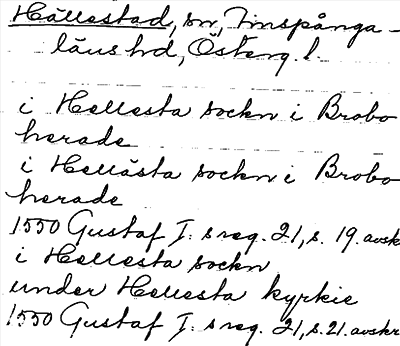 Hällestad, sn, Finspånga-
läns hd, Österg. l.
i Hellesta sockn i Brobo
herade
i Hellåsta sockn i Brobo
herade
1550 Gustaf I: s reg. 21, s. 19. avskr
i Hellesta sockn
under Hellesta kyrkie
1550 Gustaf I: s reg. 21, s. 21. avskr